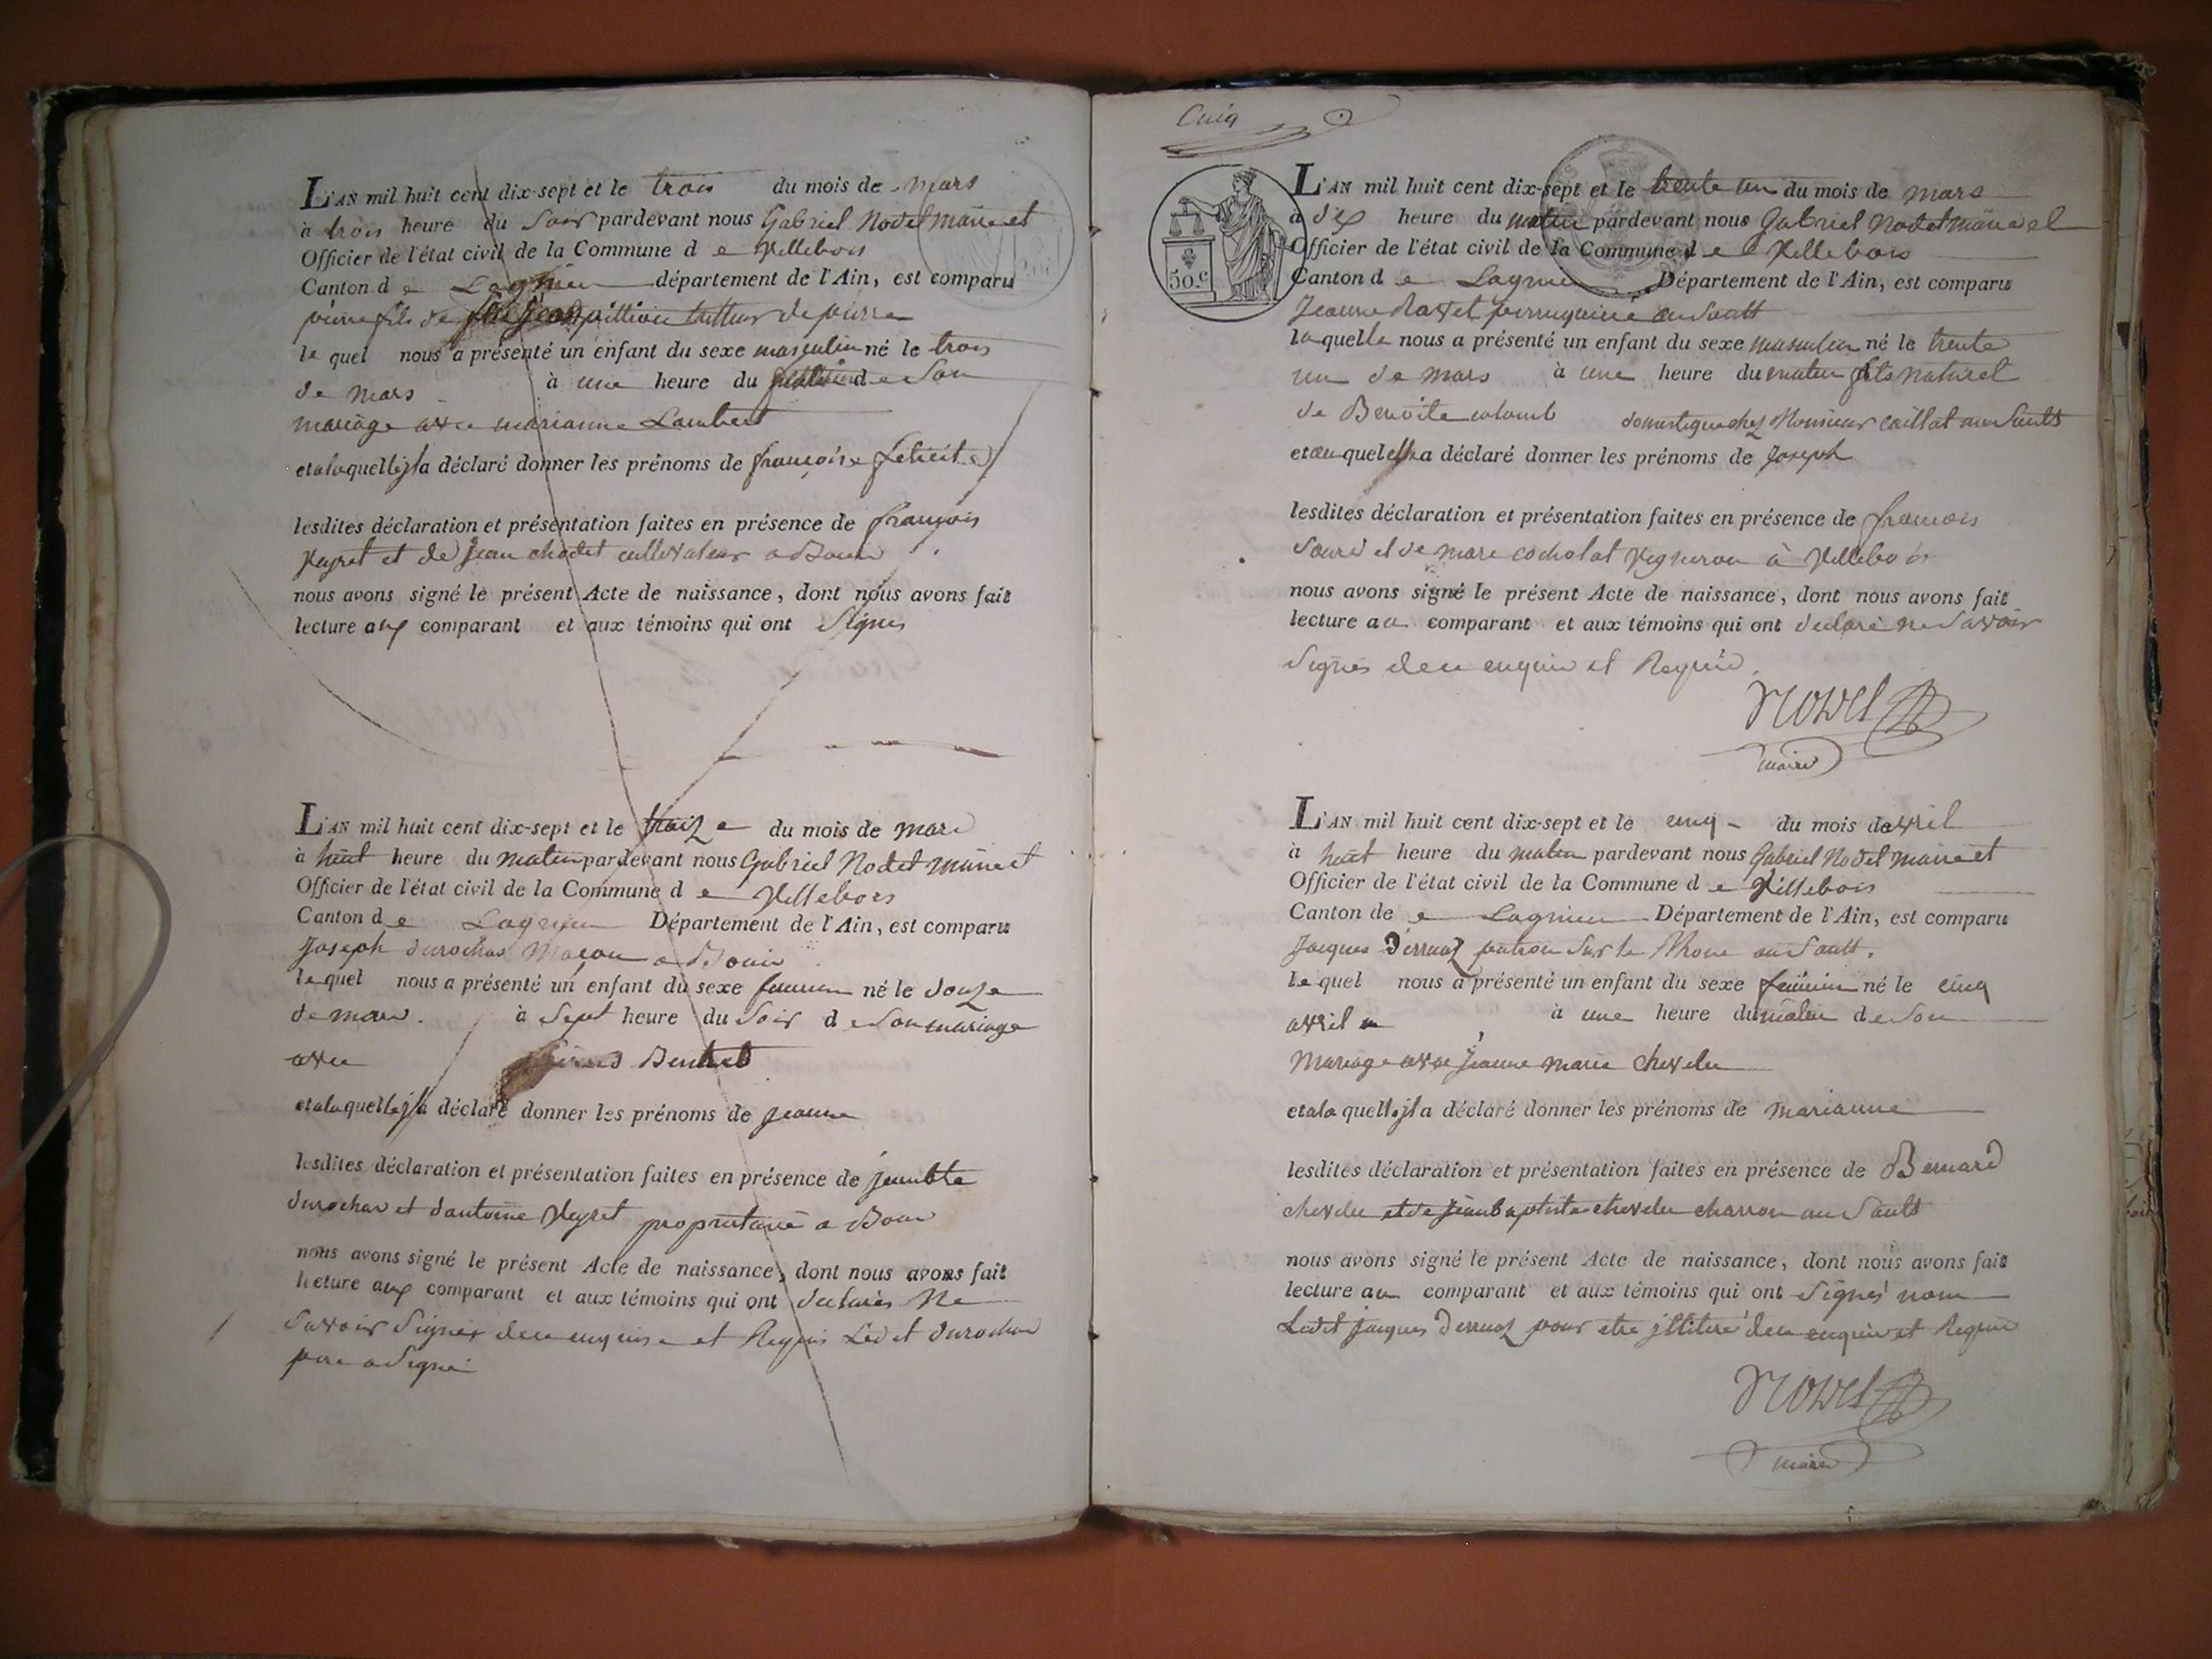 L'AN mil huit cent dix-sept et le trois du mois de mars
à trois heure du soir pardevant nous Gabriel Nodet maire et
Officier de l'état civil de la Commune d e Villebois
Canton d e Lagnieu département de l'Ain, est comparu
pierre fils de tailleur de pierre
le quel nous a présenté un enfant du sexe masculin né le trois
de mars à une heure du d e son
mariage avec marianne Lambert
et a laquelle jl a déclaré donner les prénoms de françoise felicité
lesdites déclaration et présentation faites en présence de françois
Veyret et de jean chodet cultivateur a Bouis
nous avons signé le présent Acte de naissance, dont nous avons fait
lecture aux comparant et aux témoins qui ont signés
L'AN mil huit cent dix-sept et le treize du mois de mars
à huit heure du matin pardevant nous Gabriel Nodet maire et
Officier de l'état civil de la Commune d e Villebois
Canton d e Lagnieu Département de l'Ain, est comparu
Joseph durochas Maçon a Bouis
le quel nous a présenté un enfant du sexe feminin né le douze
de mars. à sept heure du soir d e son mariage
avec
et a laquelle jl a déclaré donner les prénoms de jeanne
lesdites déclaration et présentation faites en présence de jean bte
durochas et d'antoine Veyret propriétaire a Bouis
nous avons signé le présent Acte de naissance, dont nous avons fait
lecture aux comparant et aux témoins qui ont declarés ne
savoir signer de ce enquise et Requis Ledit durochas
pere a signé
Cinq
50.c
L'AN mil huit cent dix-sept et le trente un du mois de mars
à dix heure du matin pardevant nous Gabriel Nodet maire et
Officier de l'état civil de la Commune d e Villebois
Canton d e Lagnieu Département de l'Ain, est comparu
Jeanne Ravet perruquiere au Sault
la quelle nous a présenté un enfant du sexe masculin né le trente
un de mars à une heure du matin fils naturel
de Benoite colomb domestique chez Monsieur caillat au Sault
et au quel elle a déclaré donner les prénoms de Joseph
lesdites déclaration et présentation faites en présence de francois
et de marc cocholat Vigneron à Villebois
nous avons signé le présent Acte de naissance, dont nous avons fait
lecture au comparant et aux témoins qui ont declaré ne savoir
signés de ce enquis et Requis
NODET
maire
L'AN mil huit cent dix-sept et le cinq du mois d'avril
à huit heure du matin pardevant nous Gabriel Nodet maire et
Officier de l'état civil de la Commune d e Villebois
Canton de e Lagnieu Département de l'Ain, est comparu
Jacques Derruaz patron sur le Rhone au Sault.
le quel nous a présenté un enfant du sexe feminin né le cinq
avril à une heure du matin d e son
Mariage avec jeanne marie chevelu
et a la quelle jl a déclaré donner les prénoms de marianne
lesdites déclaration et présentation faites en présence de Bernard
chevelu et de jean baptiste chevelu charron au Sault
nous avons signé le présent Acte de naissance, dont nous avons fait
lecture au comparant et aux témoins qui ont signés non
Ledit jacques Derruaz pour etre jllitéré de ce enquis et Requis
NODET
maire